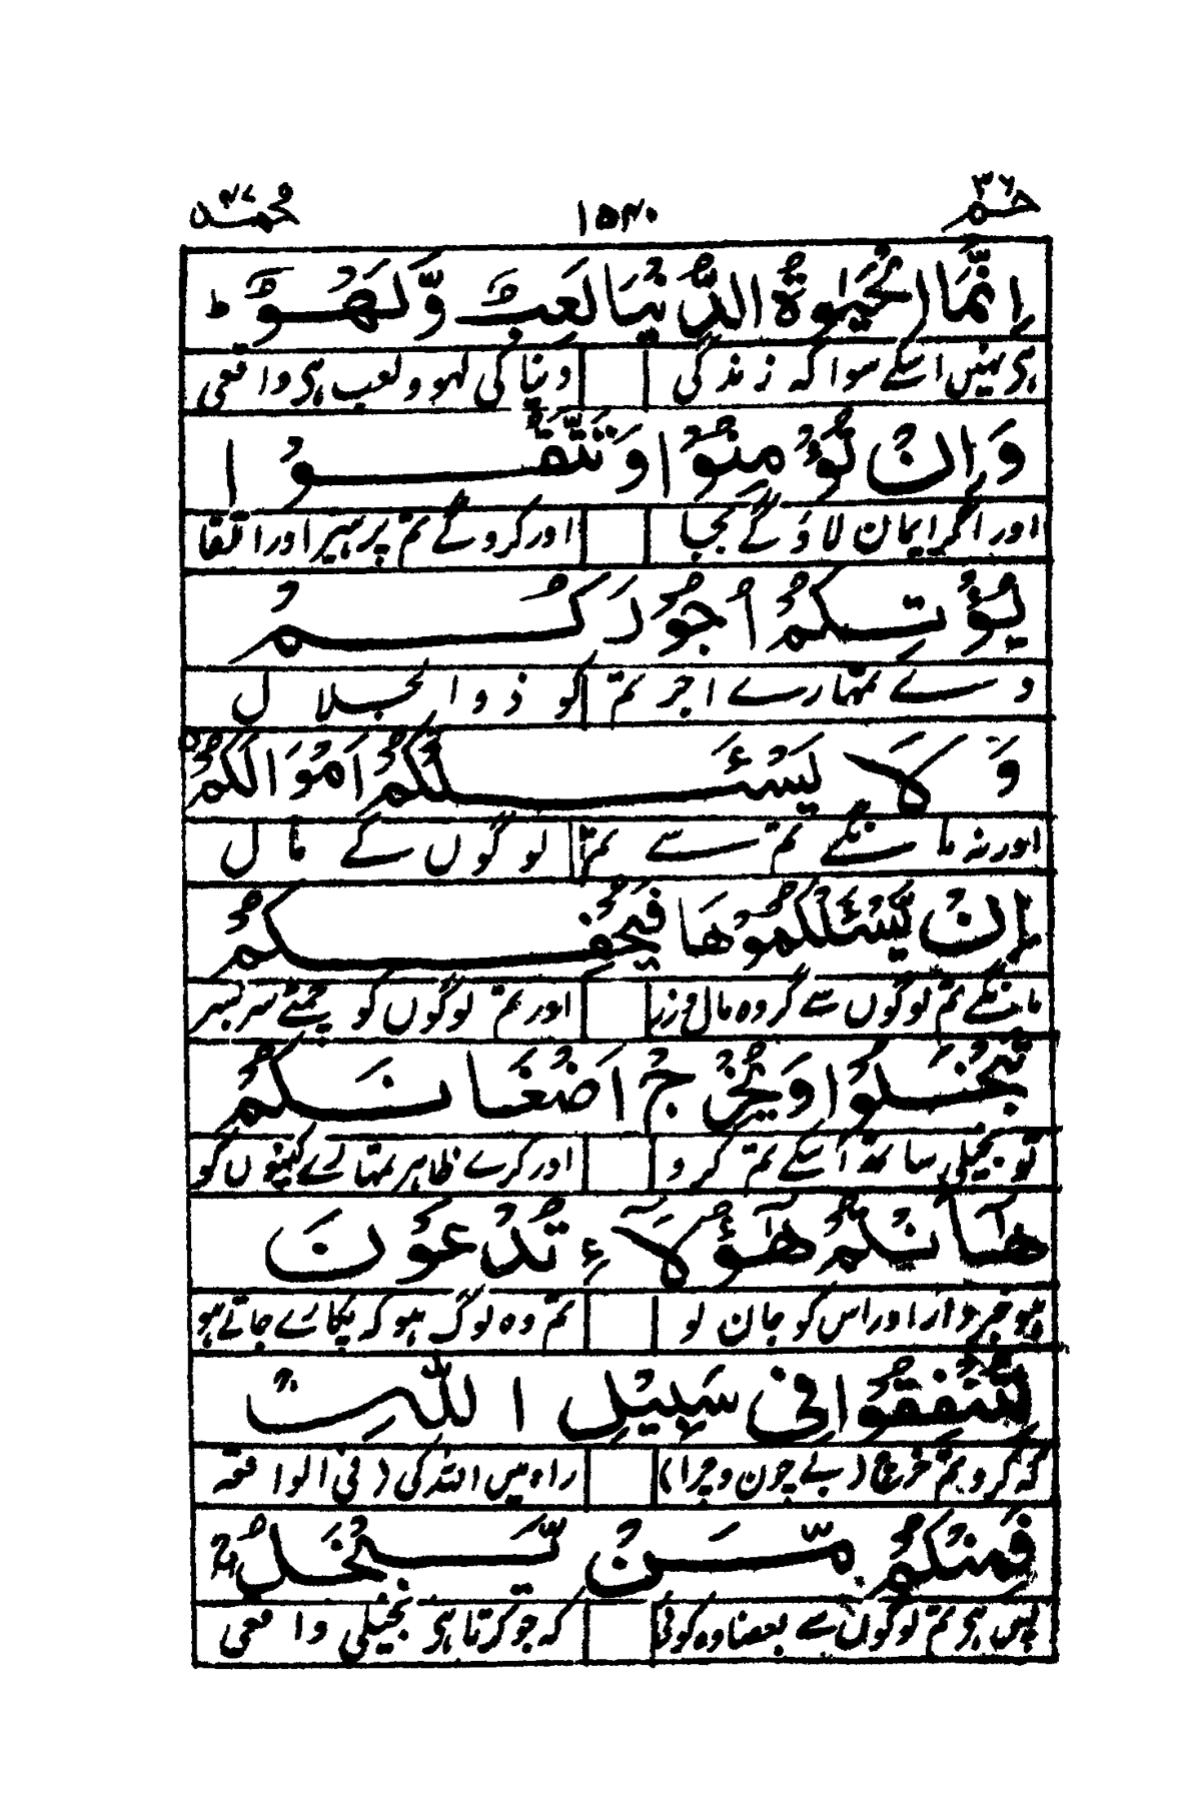 حٰمٓ ٢٦ ١٥٤٠ محمد ٤٧
اِنَّمَا الْحَيٰوةُ الدُّنْيَا لَعِبٌ وَّلَهْوٌ ؕ
ہی نہیں اسکے سوا کہ زندگی دنیا کی لہو و لعب ہی واقعی
وَاِنْ تُؤْمِنُوْا وَتَتَّقُوْا
اور اگر ایمان لاؤ گے بجا اور کرو گے تم پرہیز اور اتقا
يُؤْتِكُمْ اُجُوْرَكُمْ
دے تمہارے اجر تم کو ذوالجلال
وَلَا يَسْئَلْكُمْ اَمْوَالَكُمْ
اور نہ مانگے تم سے تم لوگوں کے مال
اِنْ يَّسْئَلْكُمُوْهَا فَيُحْفِكُمْ
مانگے تم لوگوں سے گر وہ مال و زر اور تم لوگوں کو چمٹے سر بسر
تَبْخَلُوْا وَيُخْرِجْ اَضْغَانَكُمْ
تو بخیلی ساتھ اسکے تم کرو اور کرے ظاہر تمہارے کینوں کو
هٰۤاَنْتُمْ هٰۤؤُلَآءِ تُدْعَوْنَ
ہو خبردار اور اس کو جان لو تم وہ لوگ ہو کہ پکارے جاتے ہو
لِتُنْفِقُوْا فِيْ سَبِيْلِ اللّٰهِ ۚ
کہ کرو تم خرچ (بے چون و چرا) راہ میں اللہ کی (فی الواقعہ
فَمِنْكُمْ مَّنْ يَّبْخَلُ ۚ
پس ہی تم لوگوں سے بعضا وہ کوئی کہ جو کرتا ہی بخیلی واقعی